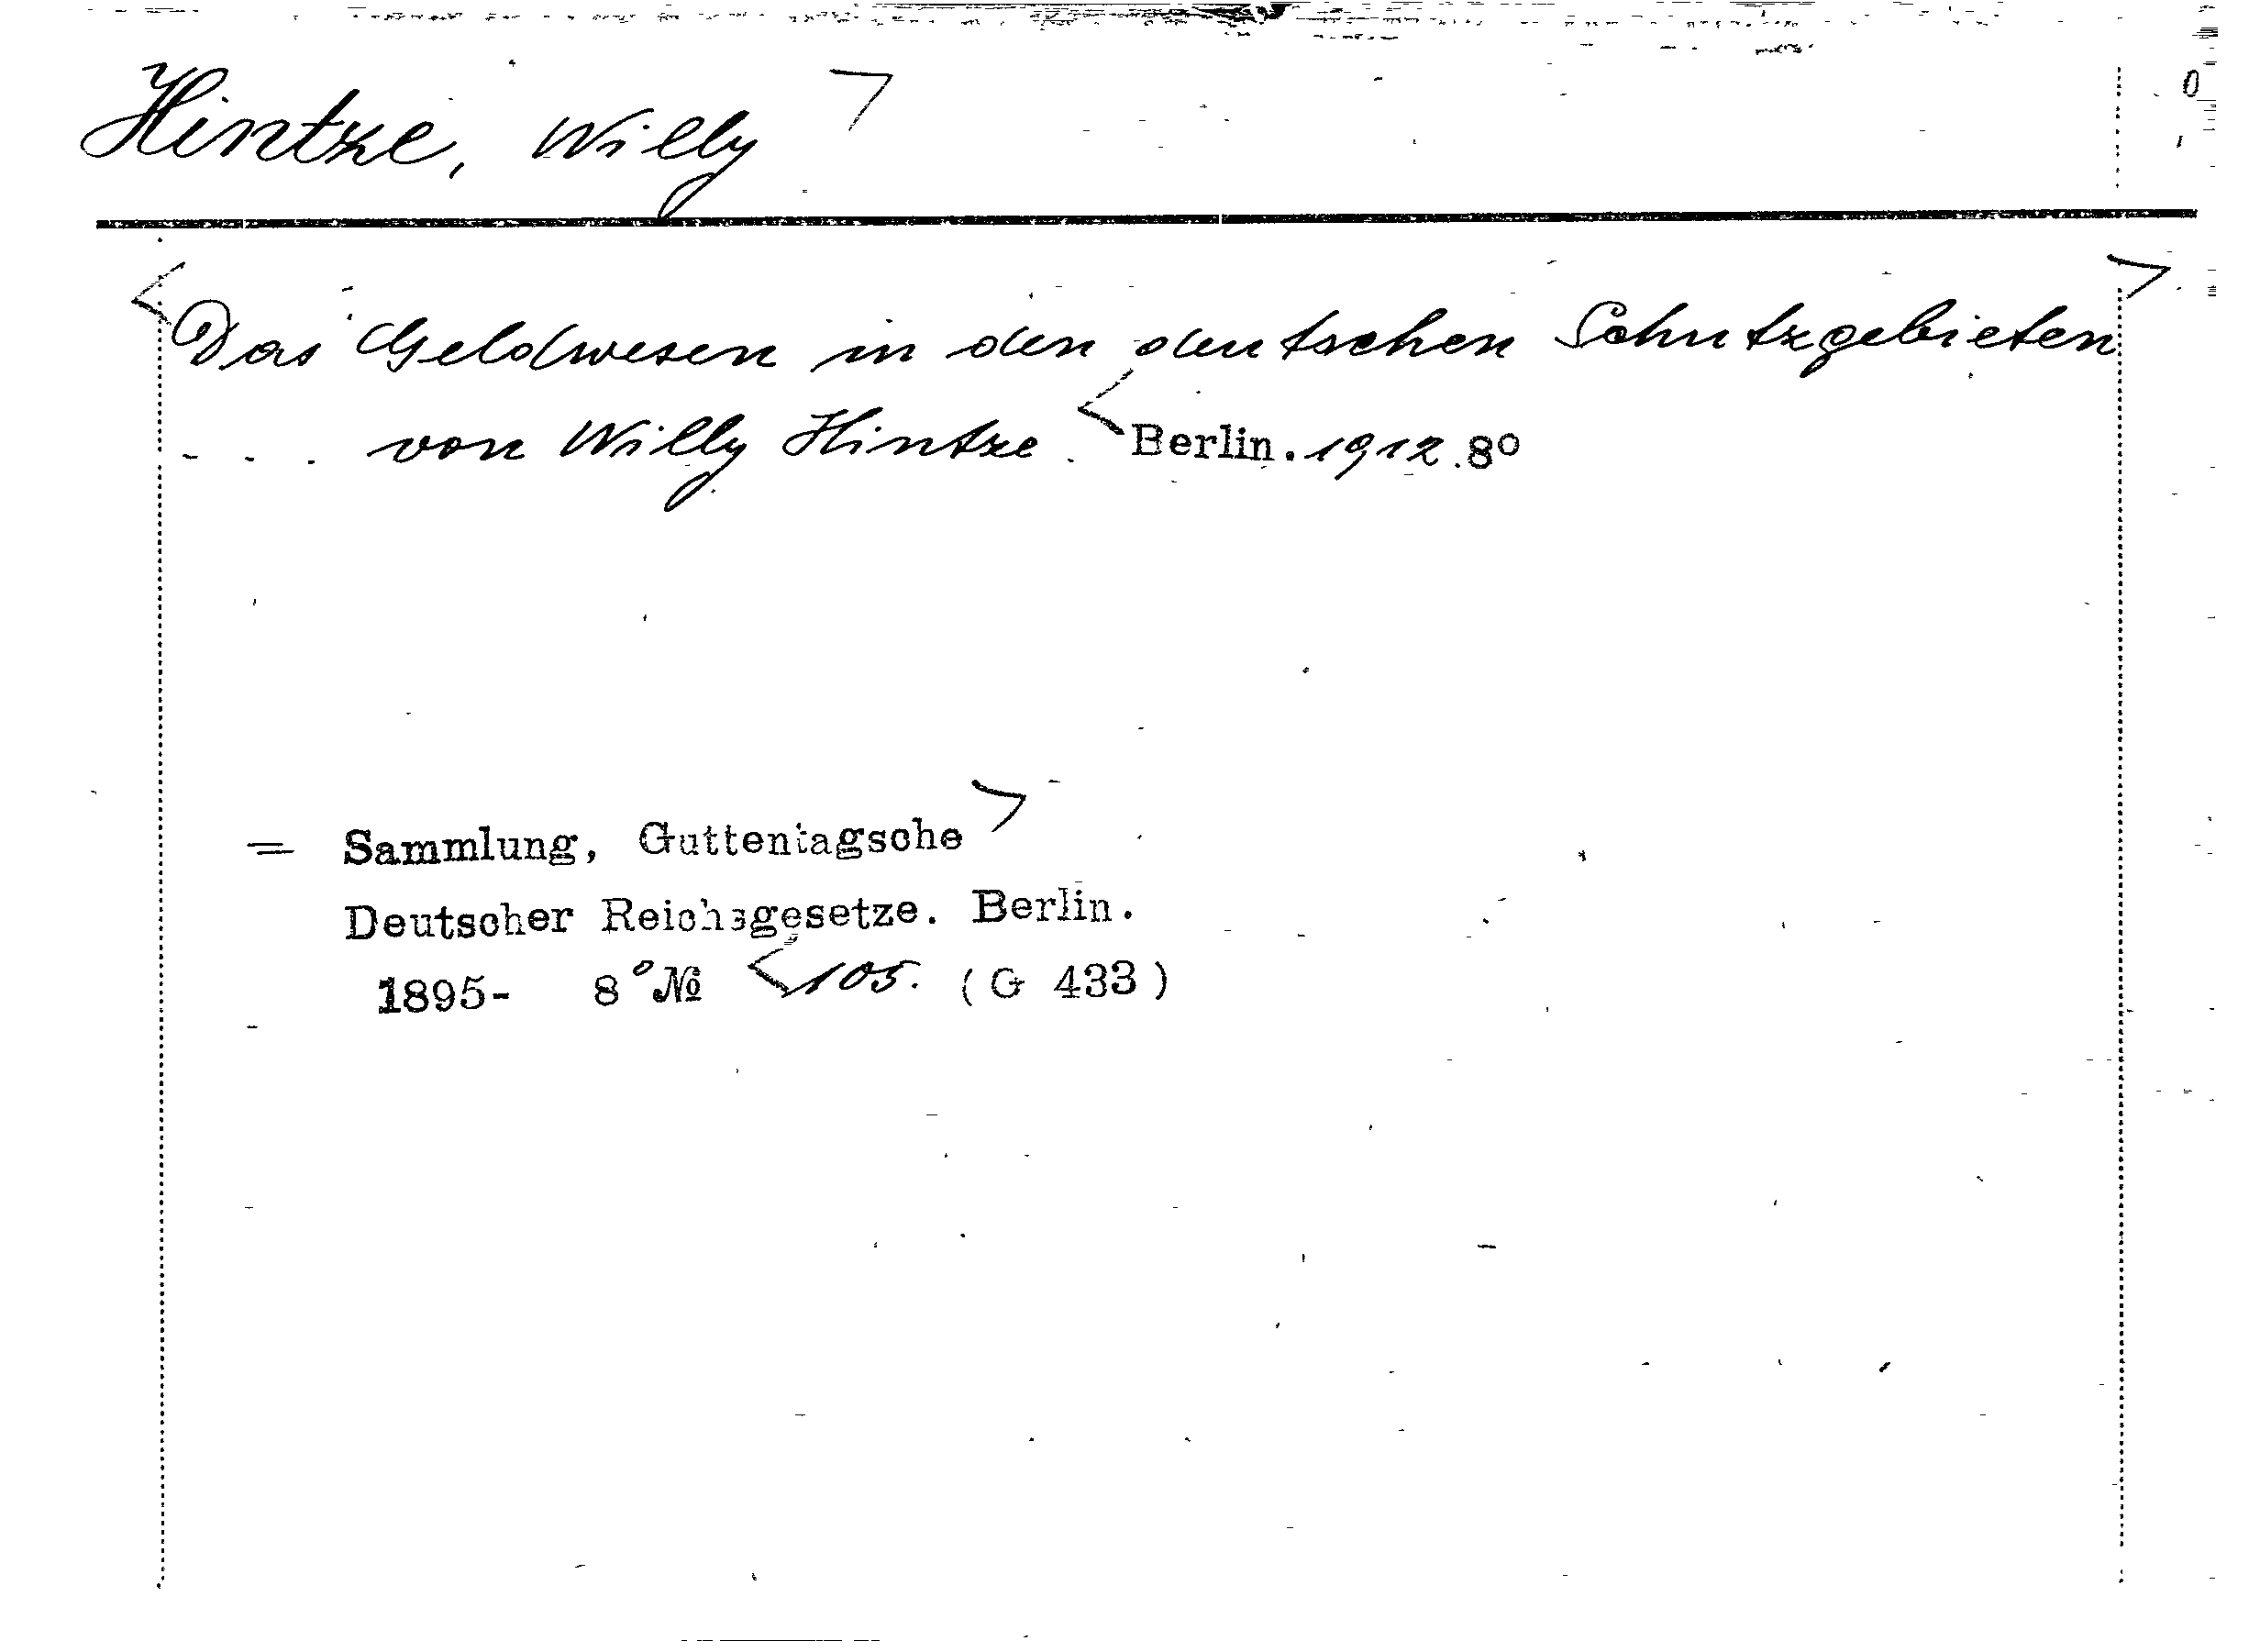 Hintze, Willy
Das Geldwesen in den deutschen Schutzgebieten
- . . von Willy Hintze. Berlin. 1912. 8º
= Sammlung, Guttentagsche
Deutscher Reichsgesetze. Berlin.
1895- 8º № 105. (G 433)